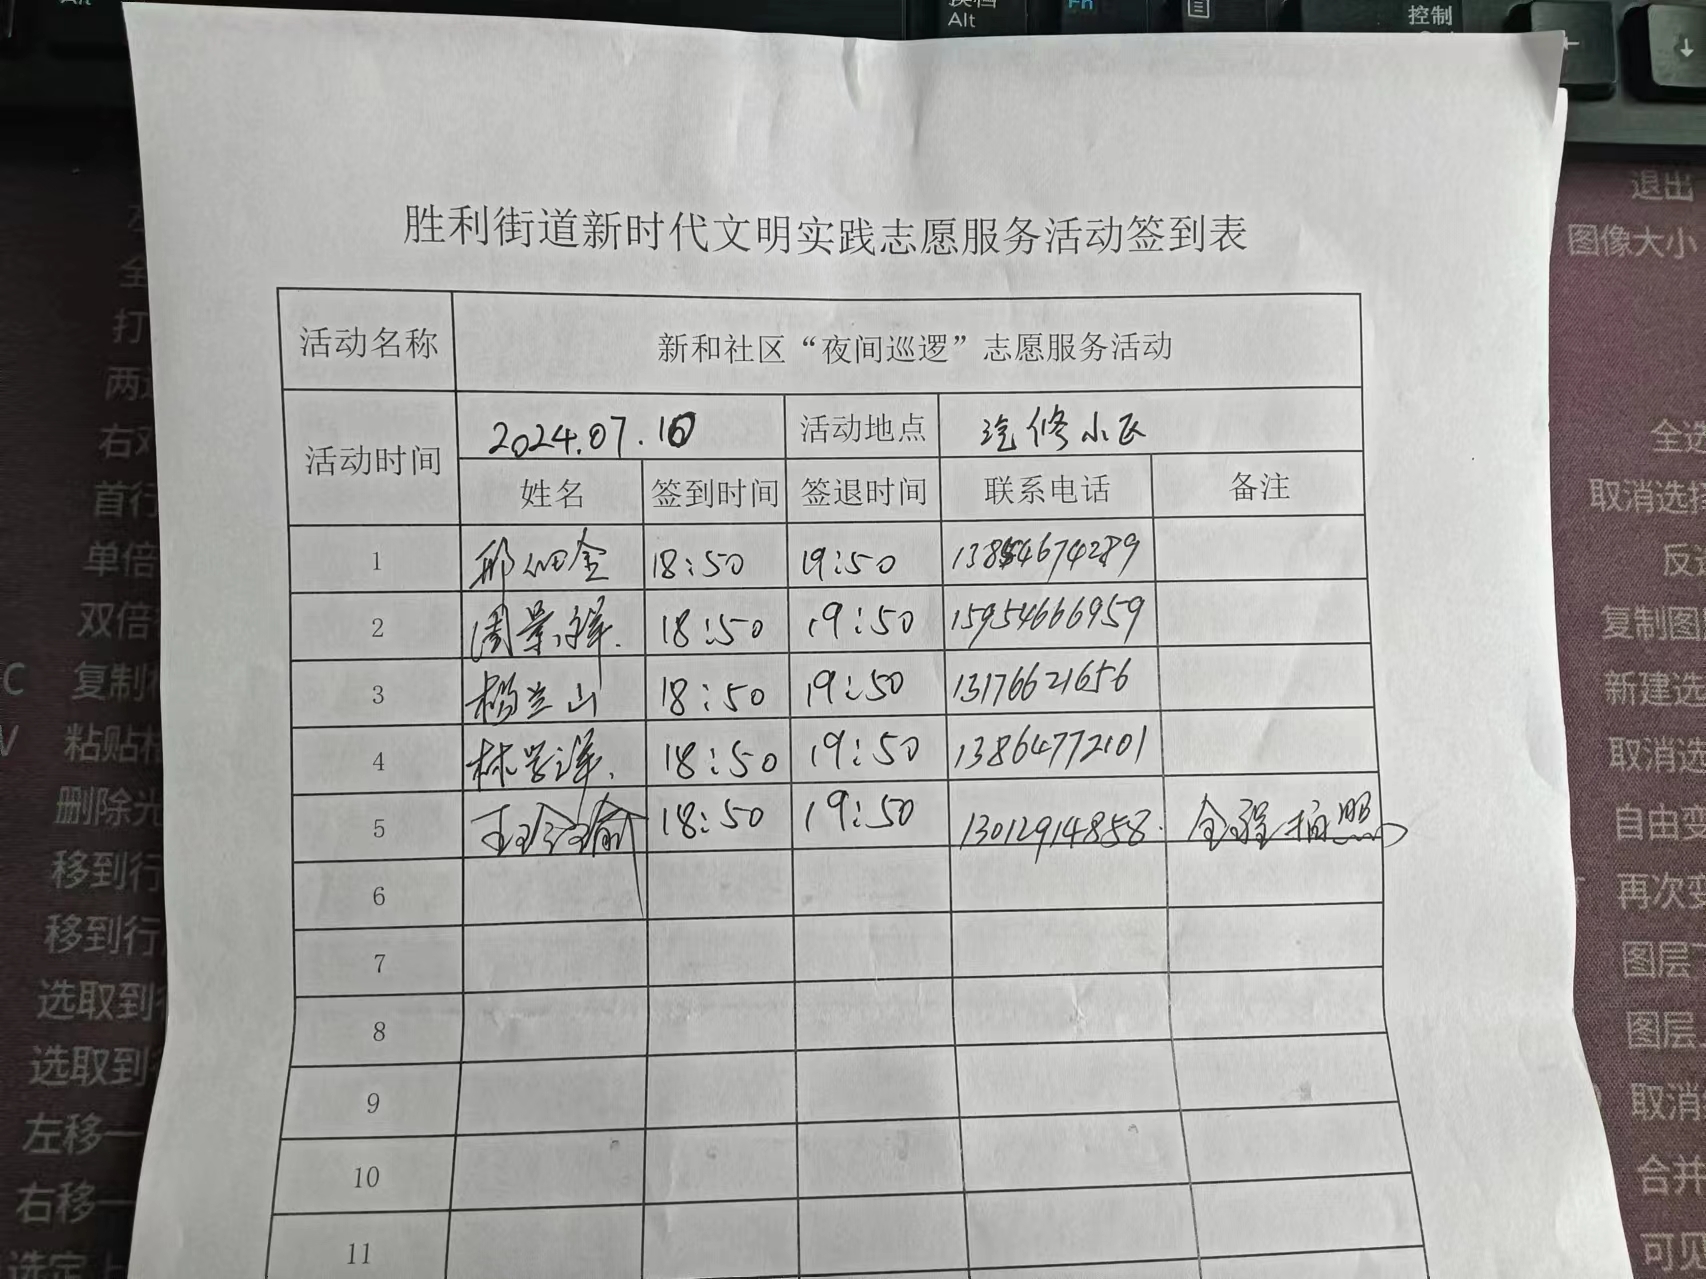 换档
Alt
Alt
Fn
控制
退出
图像大小
胜利街道新时代文明实践志愿服务活动签到表
活动名称 新和社区“夜间巡逻”志愿服务活动
活动时间 2024.07.10 活动地点 汽修小区
姓名 签到时间 签退时间 联系电话 备注
1 邢佃金 18:50 19:50 13854674289
2 周景祥. 18:50 19:50 15954666959
3 杨兰山 18:50 19:50 13176621656
4 林学泽. 18:50 19:50 13864772101
5 王玲瑜 18:50 19:50 13012914858. 全程拍照
6
7
8
9
10
11
打
右对
首行
单倍
双倍
C 复制格
V 粘贴格
删除光
移到行
移到行
选取到行
选取到
左移一
右移一
选定上
全选
取消选择
反选
复制图
新建选
取消选
自由变
再次变
图层
图层
取消
合并
可见